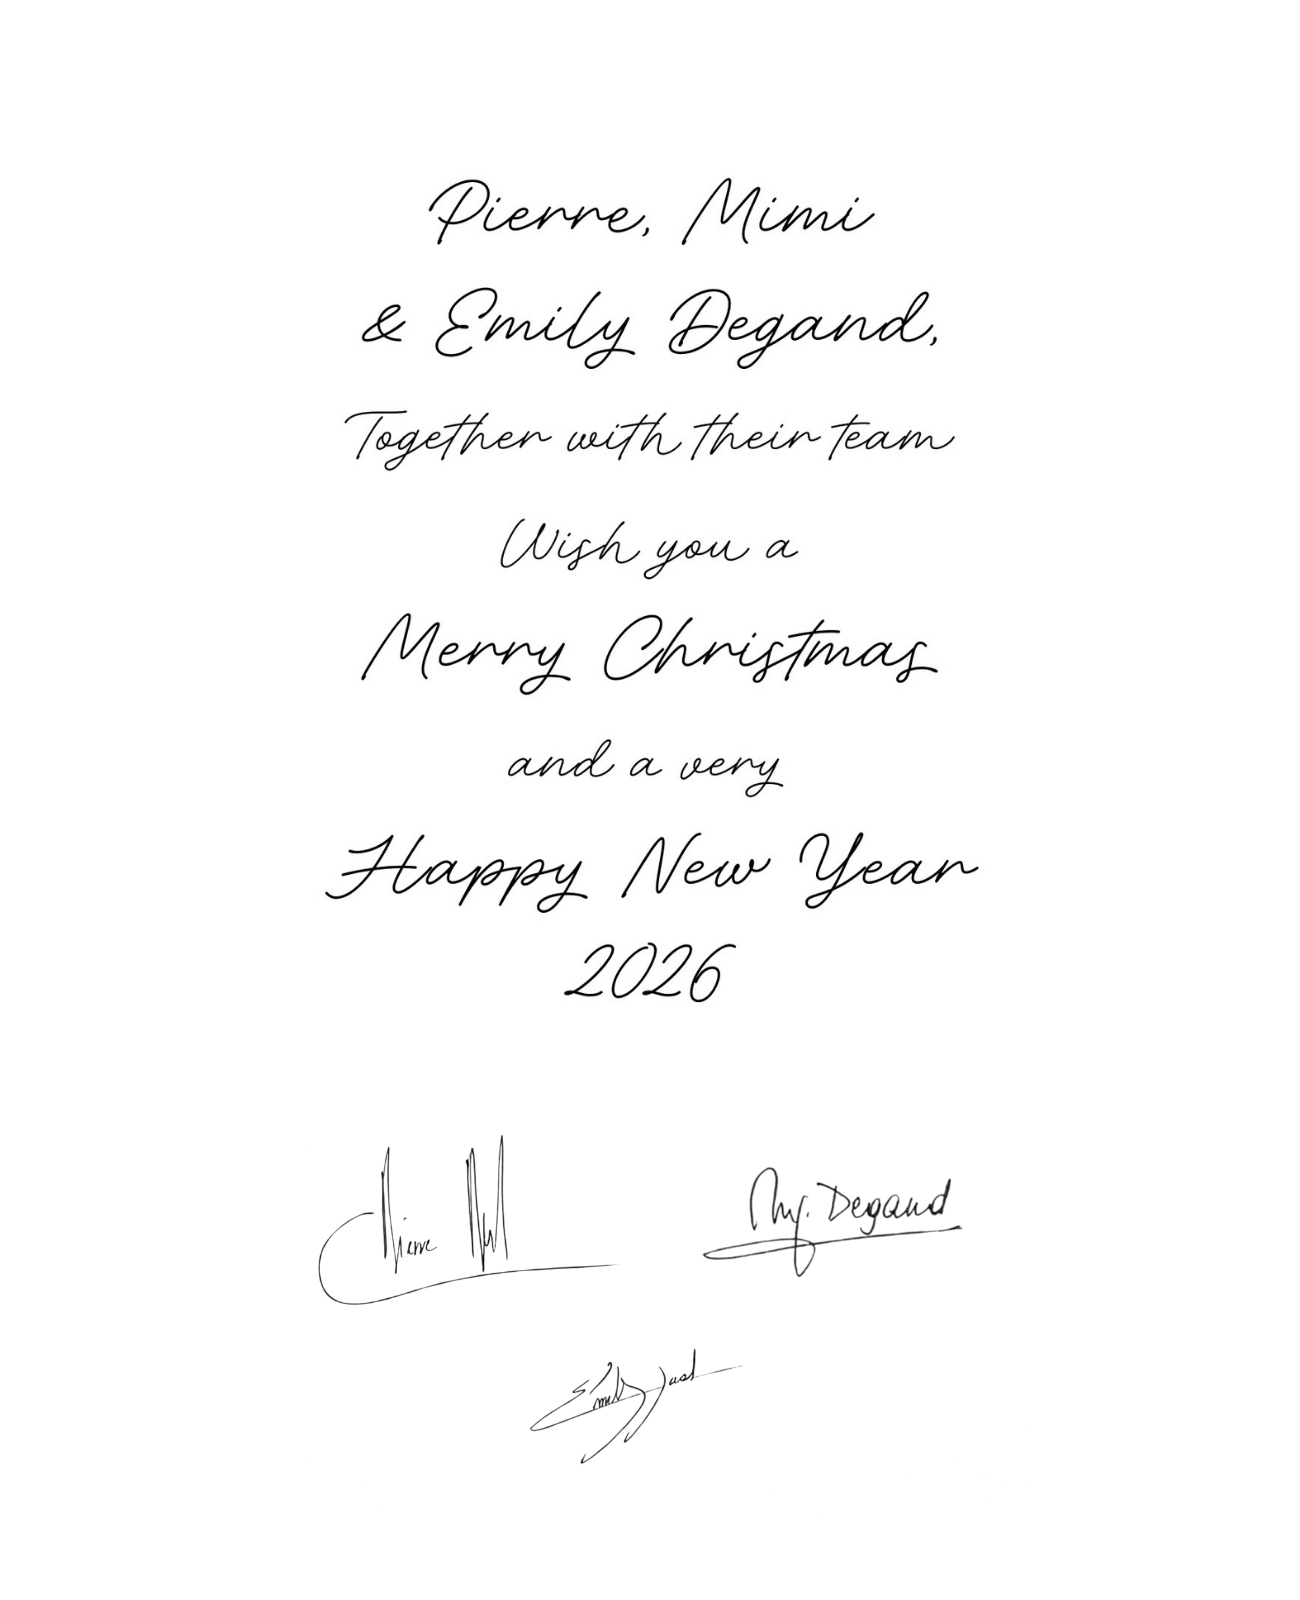 Pierre, Mimi
& Emily Degand,
Together with their team
Wish you a
Merry Christmas
and a very
Happy New Year
2026
Pierre
Degand
Emily